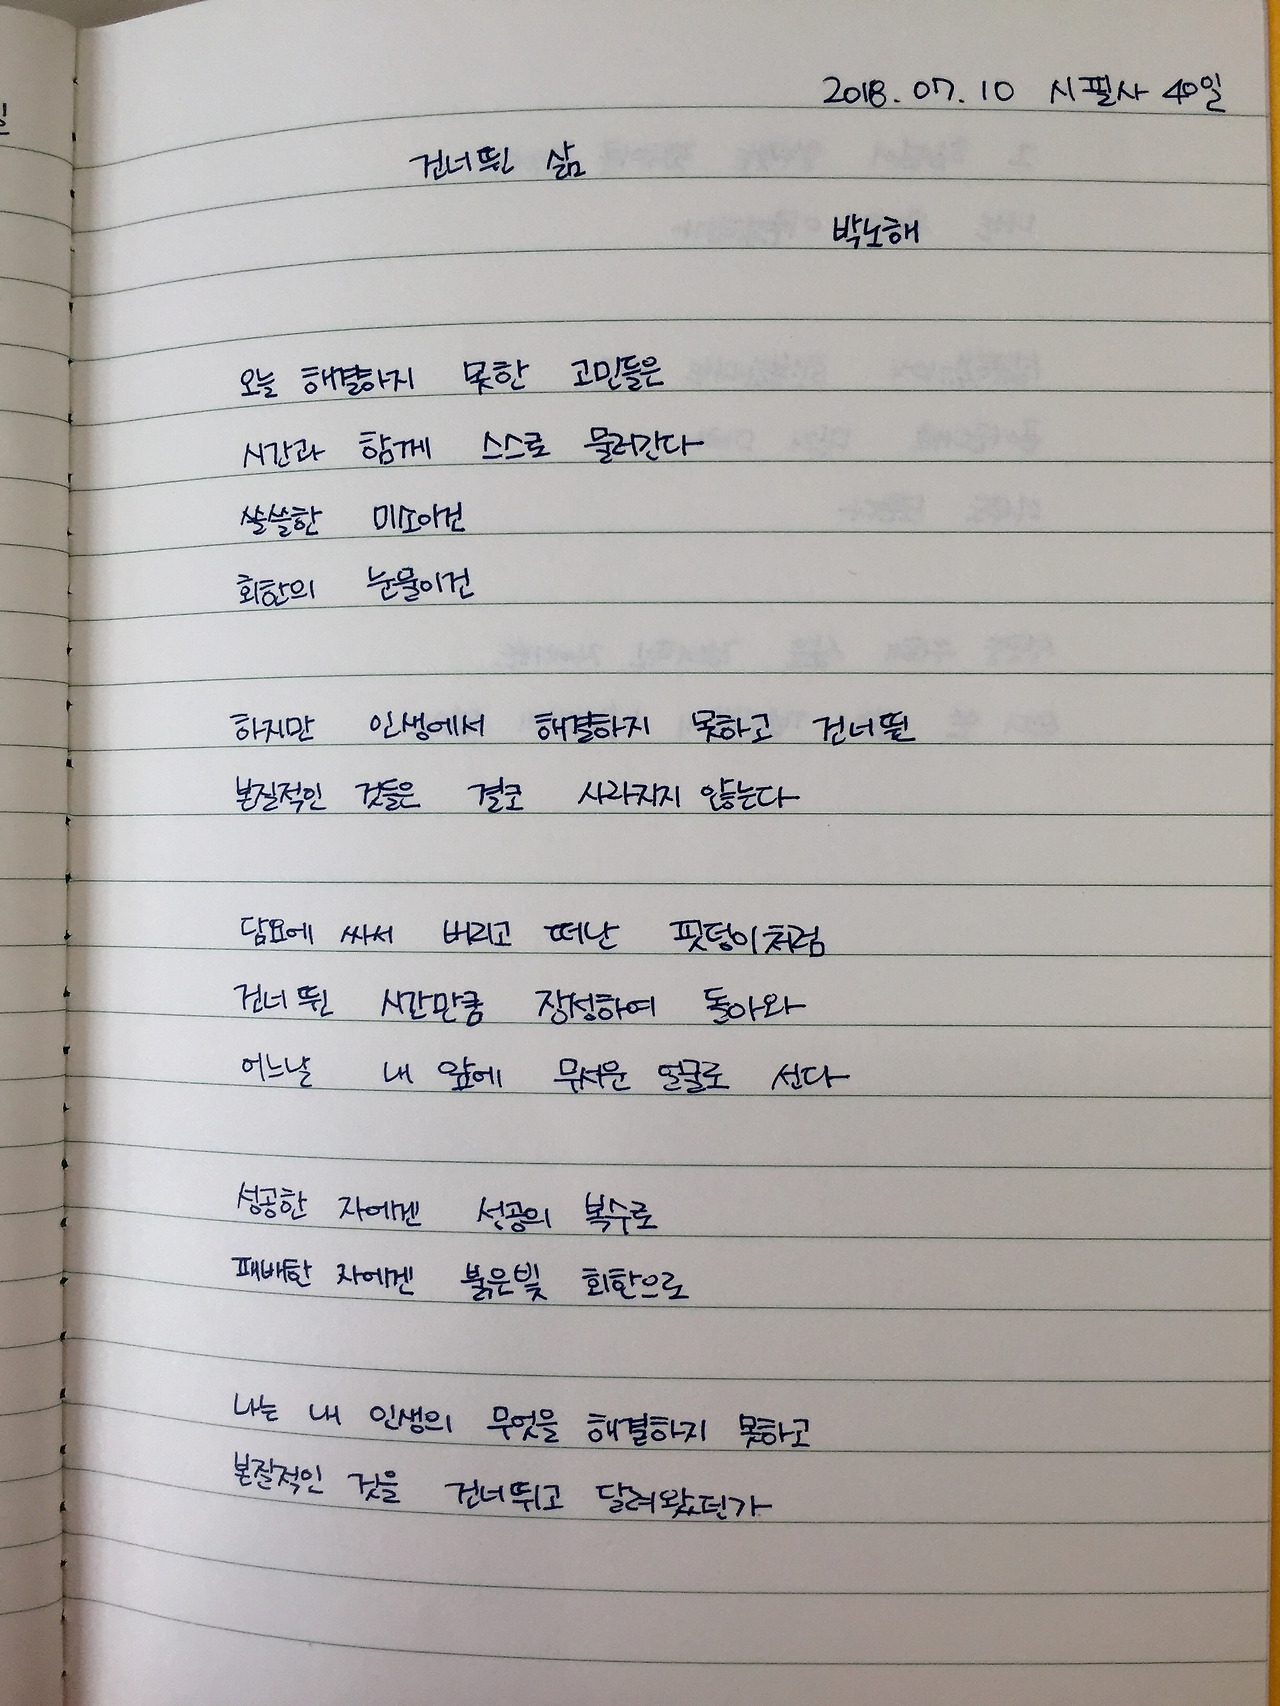 2018. 07. 10 시필사 40일
건너뛴 삶
박노해
오늘 해결하지 못한 고민들은
시간과 함께 스스로 물러간다
쓸쓸한 미소이건
회한의 눈물이건
하지만 인생에서 해결하지 못하고 건너뛴
본질적인 것들은 결코 사라지지 않는다
담요에 싸서 버리고 떠난 핏덩이처럼
건너뛴 시간만큼 장성하여 돌아와
어느날 내 앞에 무서운 얼굴로 선다
성공한 자에겐 성공의 복수로
패배한 자에겐 붉은빛 회한으로
나는 내 인생의 무엇을 해결하지 못하고
본질적인 것을 건너뛰고 달려왔던가